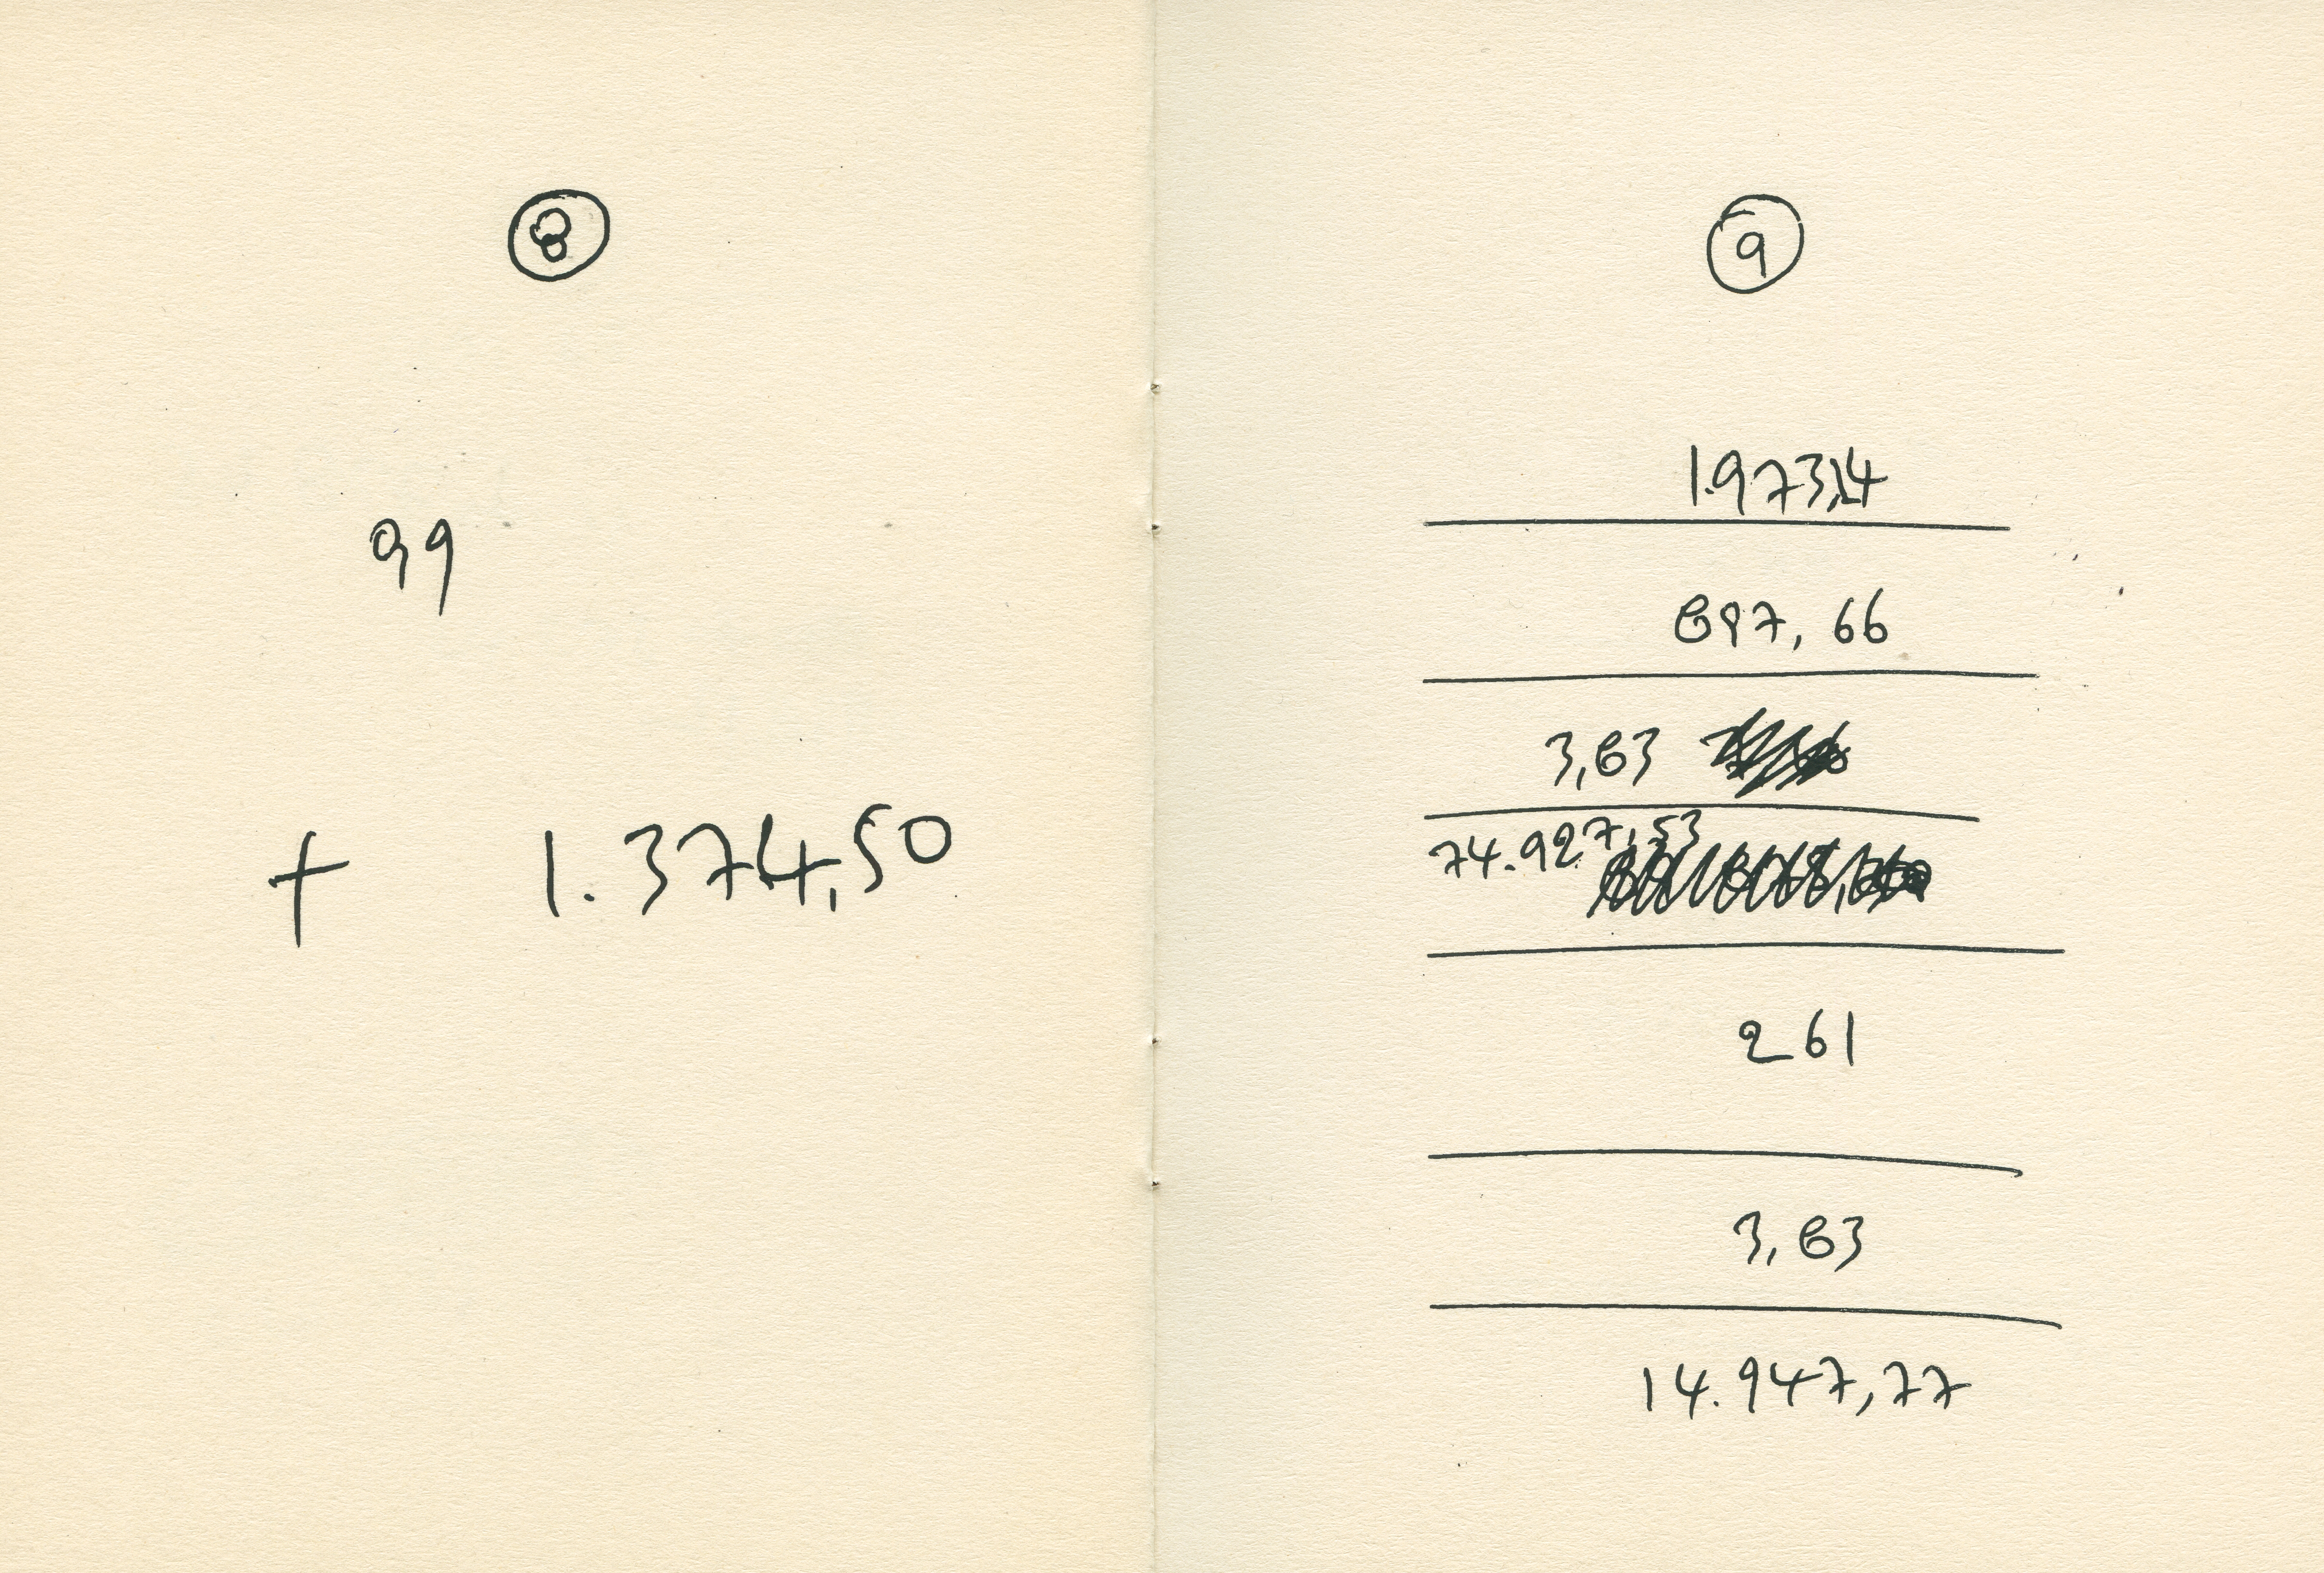 8
99
+ 1.374,50
9
1.973,14
897,66
3,83
74.927,53
261
3,83
14.947,77